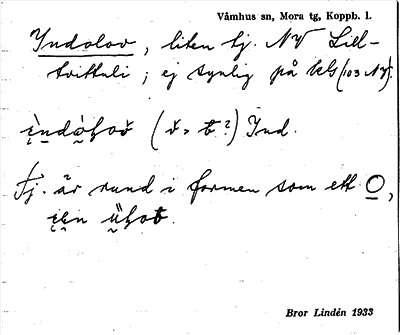 Våmhus sn, Mora tg, Koppb. l.
Indolov, liten tj. NV Lill-
tvittuli; ej synlig på kls (103 NV).
Ind.
Tj. är rund i formen som ett O,
Bror Lindén 1933